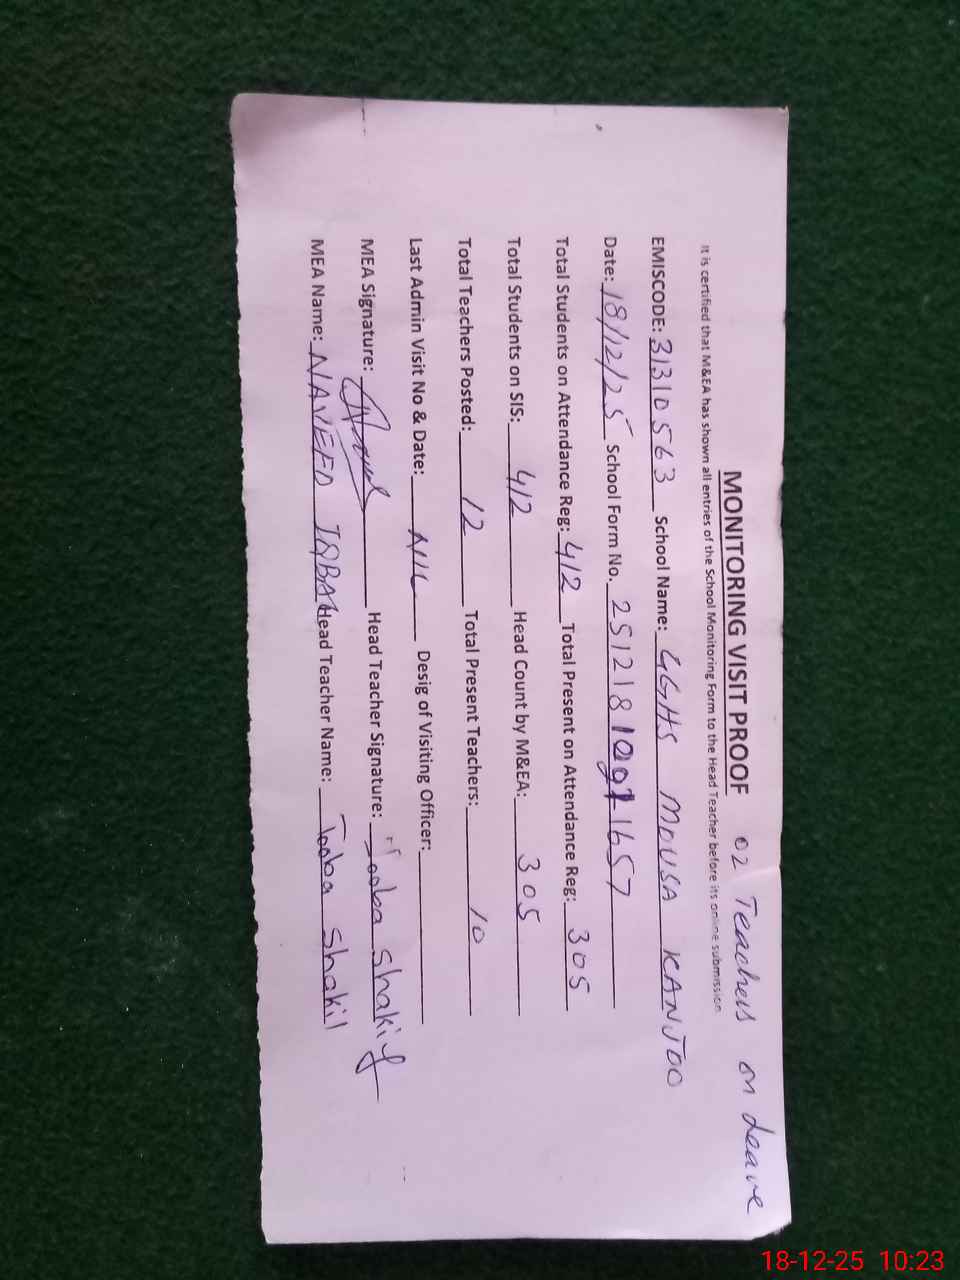 02 Teachers on Leave
MONITORING VISIT PROOF
It is certified that M&EA has shown all entries of the School Monitoring Form to the Head Teacher before its online submission
EMISCODE: 31310563 School Name: GGHS MOUSA KANJOO
Date: 18/12/25 School Form No. 251218 1657
Total Students on Attendance Reg: 412 Total Present on Attendance Reg: 305
Total Students on SIS: 412 Head Count by M&EA: 305
Total Teachers Posted: 12 Total Present Teachers: 10
Last Admin Visit No & Date: NIL Desig of Visiting Officer:
MEA Signature: Head Teacher Signature: Tooba Shakil
MEA Name: NAVEED IQBAL Head Teacher Name: Tooba Shakil
18-12-25 10:23